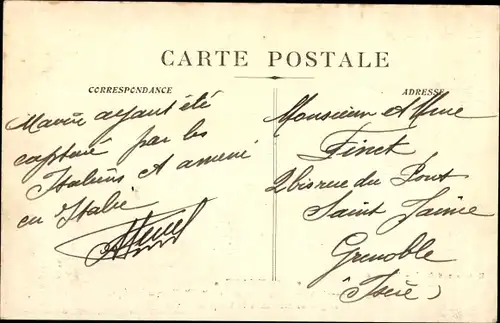 CARTE POSTALE
CORRESPONDANCE
Navire ayant été
capturé par les
Italiens et amené
en Italie
ADRESSE
Monsieur et Mme
Finet
2 bis rue du Pont
Saint Jaime
Grenoble
(Isère)